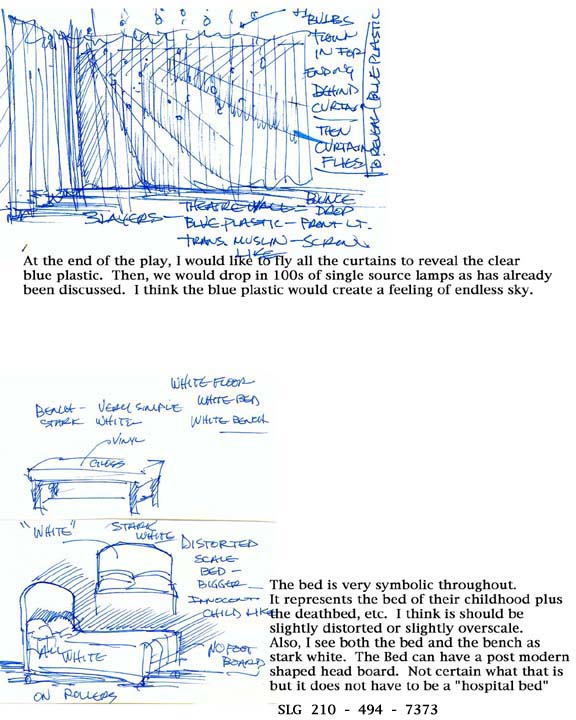 BULBS
DOWN
IN FOR
ENDING
BEHIND
CURTAIN
THEN
CURTAIN
FLIES
TO REVEAL BLUE PLASTIC
THEATRE WALL = BOUNCE
DROP
3 LAYERS - BLUE PLASTIC - FRONT LT.
TRANS MUSLIN - SCREEN
LIKE
At the end of the play, I would like to fly all the curtains to reveal the clear
blue plastic. Then, we would drop in 100s of single source lamps as has already
been discussed. I think the blue plastic would create a feeling of endless sky.
WHITE FLOOR
WHITE BED
WHITE BENCH
BENCH - VERY SIMPLE
STARK WHITE
VINYL
GLOSS
"WHITE"
STARK
WHITE
DISTORTED
SCALE
BED -
BIGGER
INNOCENT
CHILD LIKE
NO FOOT
BOARD
ALL WHITE
ON ROLLERS
The bed is very symbolic throughout.
It represents the bed of their childhood plus
the deathbed, etc. I think is should be
slightly distorted or slightly overscale.
Also, I see both the bed and the bench as
stark white. The Bed can have a post modern
shaped head board. Not certain what that is
but it does not have to be a "hospital bed"
SLG 210 - 494 - 7373